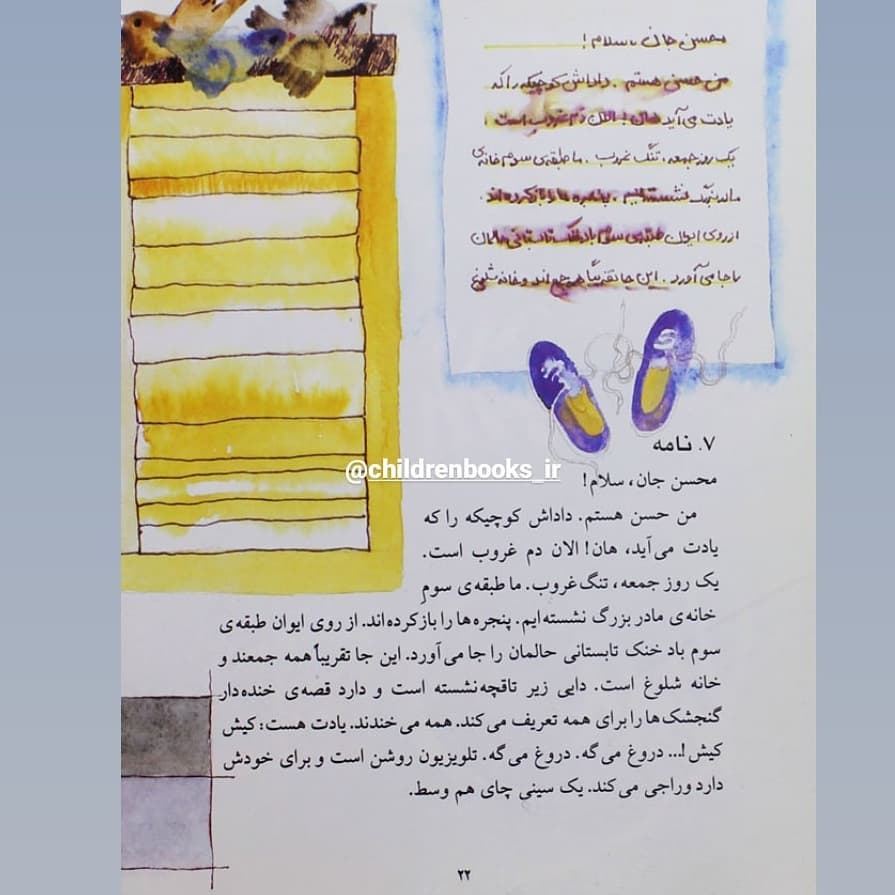 محسن جان، سلام!
من حسن هستم. داداش کوچیکه را که
یادت می‌آید هان! الان دم غروب است.
یک روز جمعه، تنگ غروب. ما طبقه‌ی سوم خانه‌ی
مادربزرگ نشسته‌ایم. پنجره‌ها را باز کرده‌اند.
از روی ایوان طبقه‌ی سوم باد خنک تابستانی حالمان
را جا می‌آورد. این جا تقریباً همه جمع‌اند و خانه شلوغ
۷. نامه
@childrenbooks_ir
محسن جان، سلام!
من حسن هستم. داداش کوچیکه را که
یادت می‌آید، هان! الان دم غروب است.
یک روز جمعه، تنگ غروب. ما طبقه‌ی سومِ
خانه‌ی مادر بزرگ نشسته‌ایم. پنجره‌ها را بازکرده‌اند. از روی ایوان طبقه‌ی
سوم باد خنک تابستانی حالمان را جا می‌آورد. این جا تقریباً همه جمعند و
خانه شلوغ است. دایی زیر تاقچه نشسته است و دارد قصه‌ی خنده‌دار
گنجشک‌ها را برای همه تعریف می‌کند. همه می‌خندند. یادت هست: کیش
کیش!... دروغ می‌گه. دروغ می‌گه. تلویزیون روشن است و برای خودش
دارد وراجی می‌کند. یک سینی چای هم وسط.
۲۲